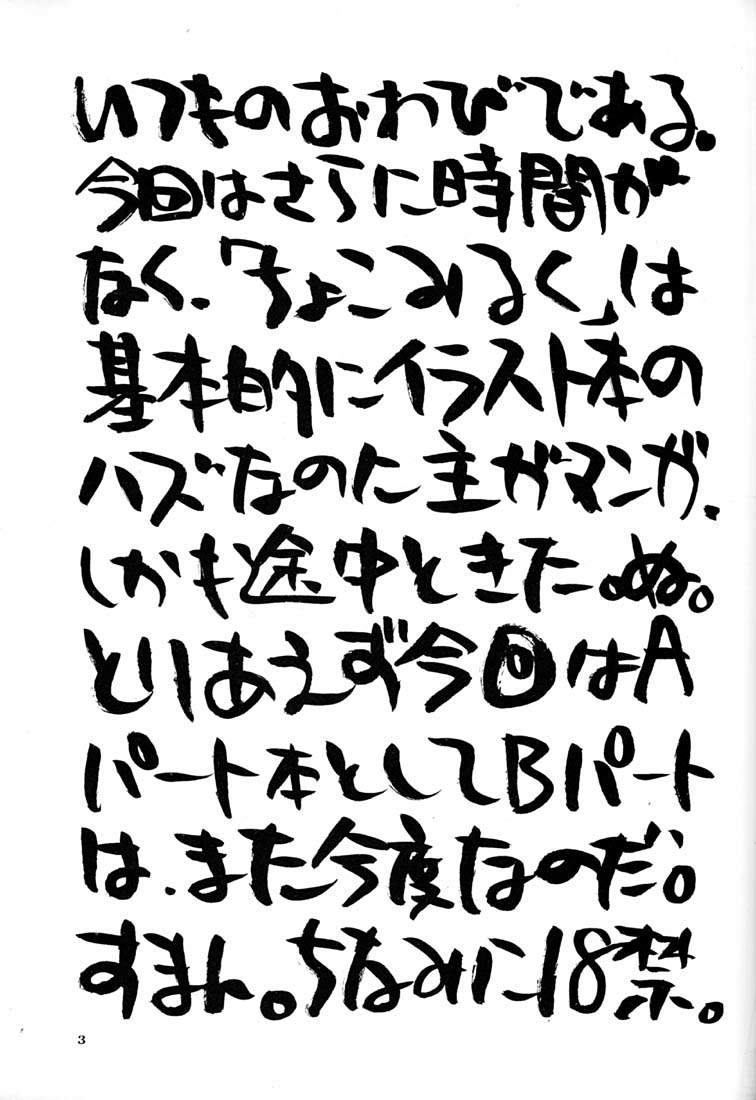 いつものおわびである。
今回はさらに時間が
なく、「ちょこみるく」は
基本的にイラスト本の
ハズなのに主がマンガ、
しかも途中ときた。ぬ。
とりあえず今回はA
パート本としてBパート
は、また今度なのだ。
すまん。ちなみに18禁。
3